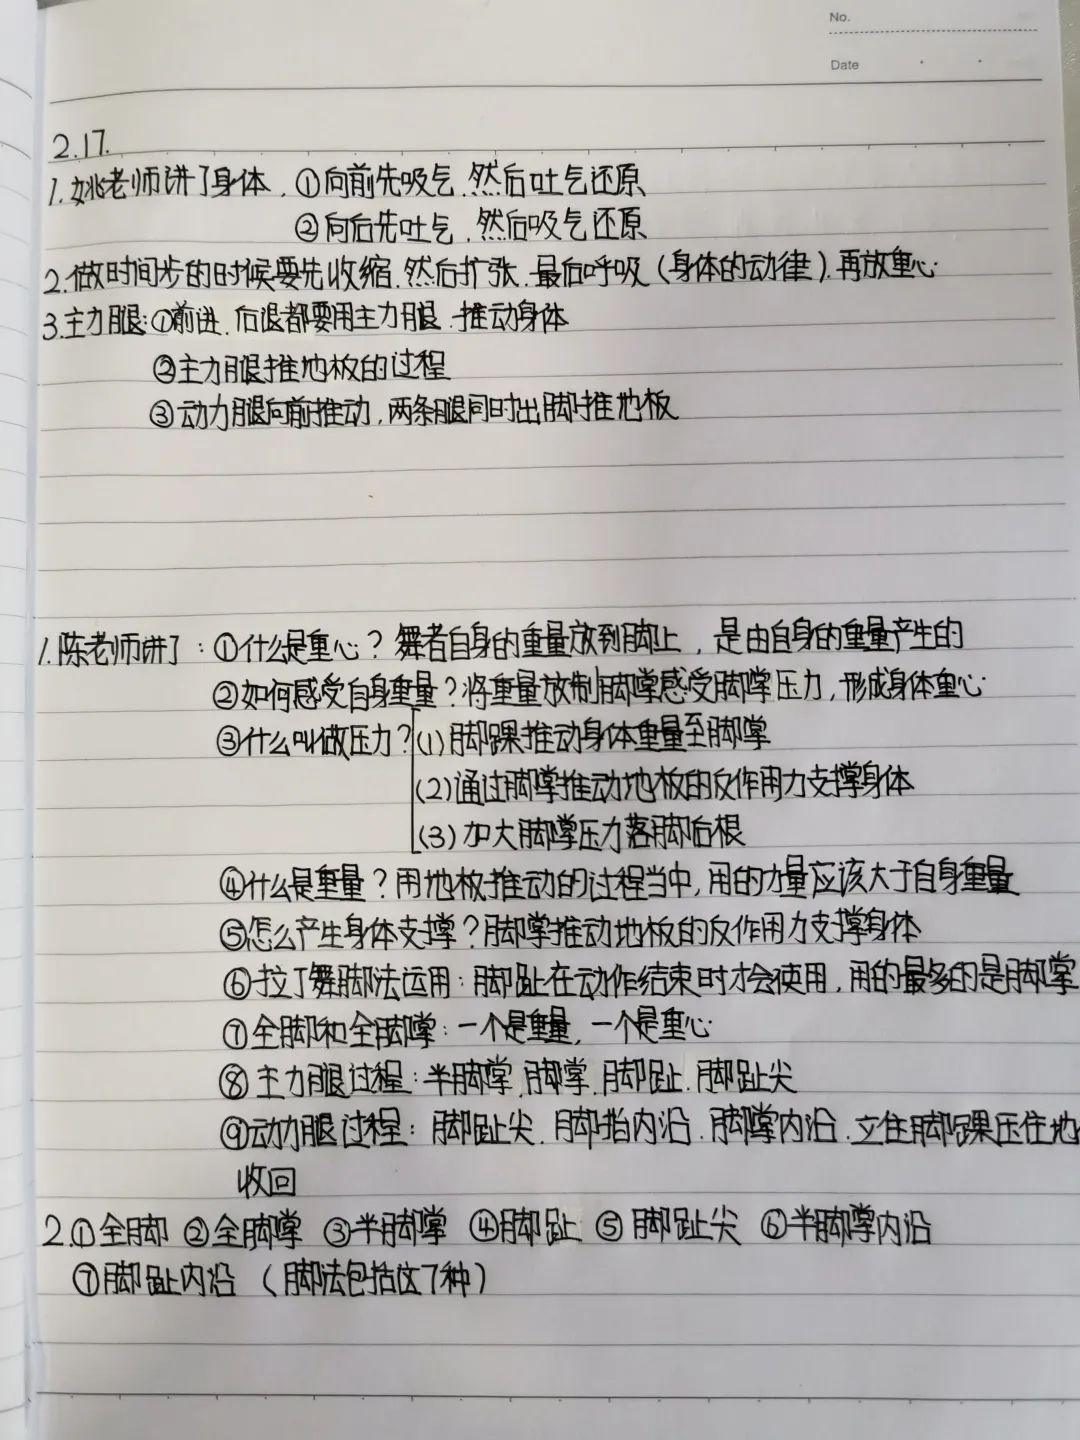 No.
Date
2.17.
1.姚老师讲了身体.①向前先吸气.然后吐气还原
②向后先吐气.然后吸气还原
2.做时间步的时候要先收缩.然后扩张.最后呼吸(身体的动律).再放重心.
3.主力腿:①前进.后退都要用主力腿.推动身体
②主力腿推地板的过程
③动力腿向前推动,两条腿同时出脚推地板
1.陈老师讲了:①什么是重心?舞者自身的重量放到脚上,是由自身的重量产生的
②如何感受自身重量?将重量放制脚掌感受脚掌压力,形成身体重心
③什么叫做压力?(1)脚踝推动身体重量至脚掌
(2)通过脚掌推动地板的反作用力支撑身体
(3)加大脚掌压力落脚后根
④什么是重量?用地板推动的过程当中,用的力量应该大于自身重量
⑤怎么产生身体支撑?脚掌推动地板的反作用力支撑身体
⑥拉丁舞脚法运用:脚趾在动作结束时才会使用,用的最多的是脚掌
⑦全脚和全脚掌:一个是重量,一个是重心
⑧主力腿过程:半脚掌.脚掌.脚趾.脚趾尖
⑨动力腿过程:脚趾尖.脚指内沿.脚掌内沿.立住脚踝压住地
收回
2.①全脚 ②全脚掌 ③半脚掌 ④脚趾 ⑤脚趾尖 ⑥半脚掌内沿
⑦脚趾内沿 (脚法包括这7种)